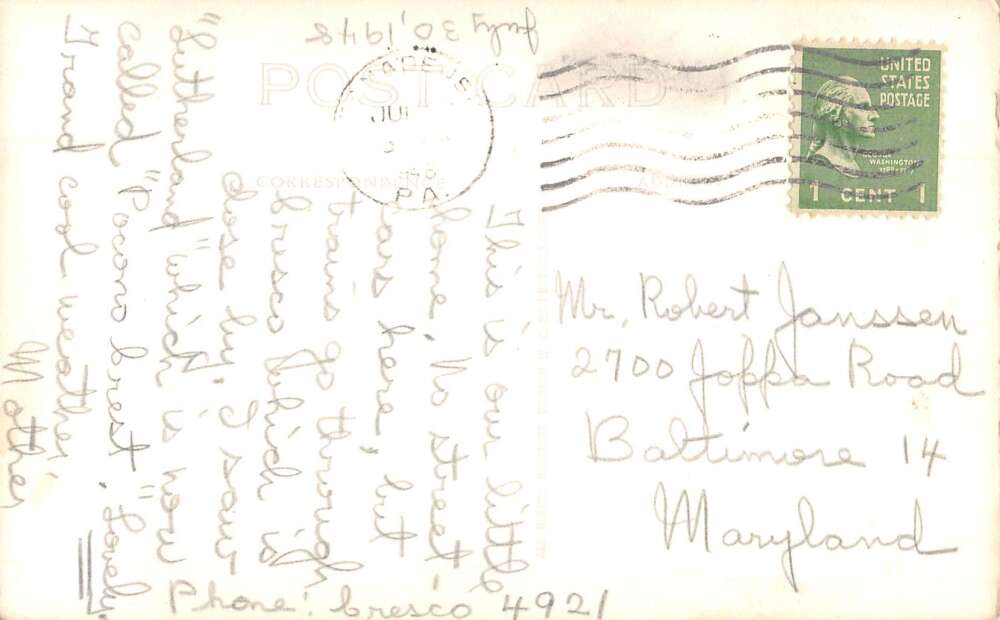 July 30, 1948
POST CARD
CORRESPONDENCE
ADDRESS
JUL
PA.
UNITED
STATES
POSTAGE
WASHINGTON
1 CENT 1
This is our little
home. No street
cars here, but
trains go through
Cresco which is
close by. I saw
"Sutherland" which is now
called "Pocono Crest." Lovely.
Grand cool weather.
Mother
Phone: Cresco 4921
Mr. Robert Janssen
2700 Joppa Road
Baltimore 14
Maryland